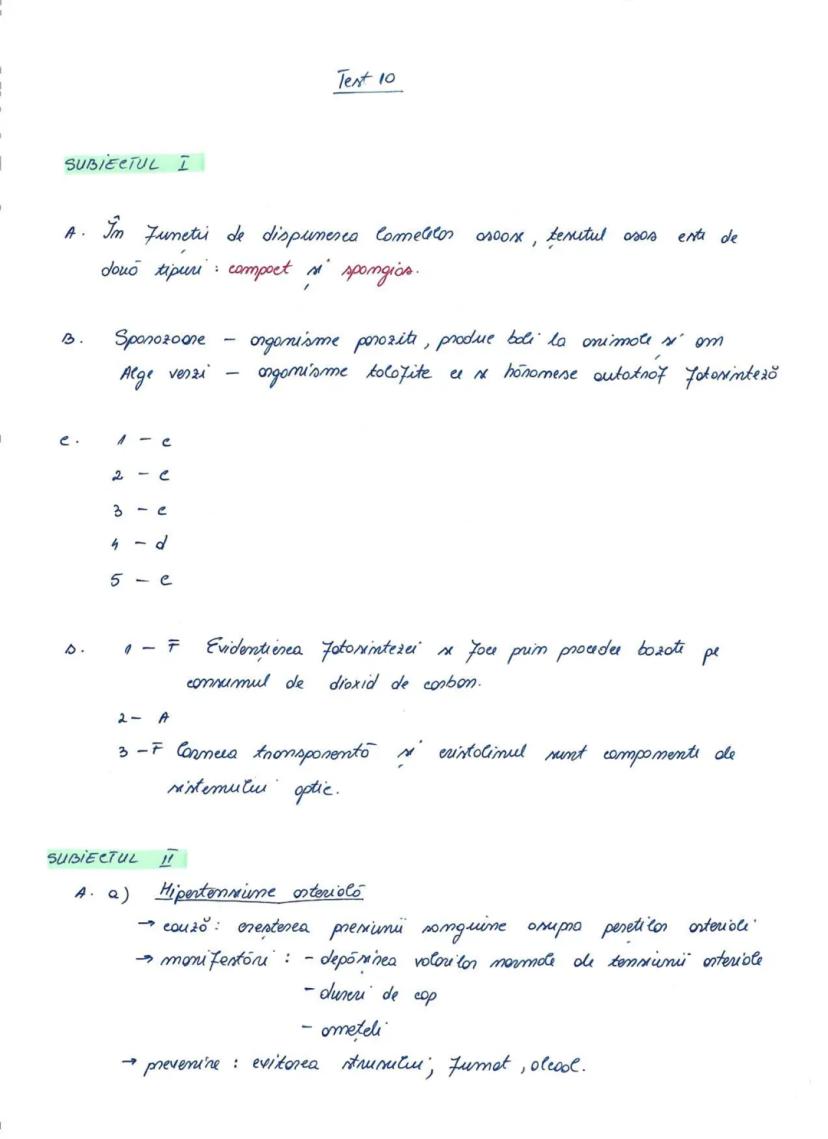 Test 10
SUBIECTUL I
A. În funcții de dispunerea lamelelor osoase, țesutul osos este de
două tipuri : compact și spongios.
B. Sporozoare – organisme parazite, produc boli la animale și om
Alge verzi – organisme talofite ce se hrănesc autotrof fotosinteză
C. 1 – c
2 – c
3 – c
4 – d
5 – c
D. 1 – F Evidențierea fotosintezei se face prin procedee bazate pe
consumul de dioxid de carbon.
2 – A
3 – F Corneea transparentă și cristalinul sunt componente ale
sistemului optic.
SUBIECTUL II
A. a) Hipertensiune arterială
→ cauză : creșterea presiunii sanguine asupra pereților arteriali
→ manifestări : - depășirea valorilor normale ale tensiunii arteriale
- dureri de cap
- amețeli
→ prevenire : evitarea stresului; fumat, alcool.